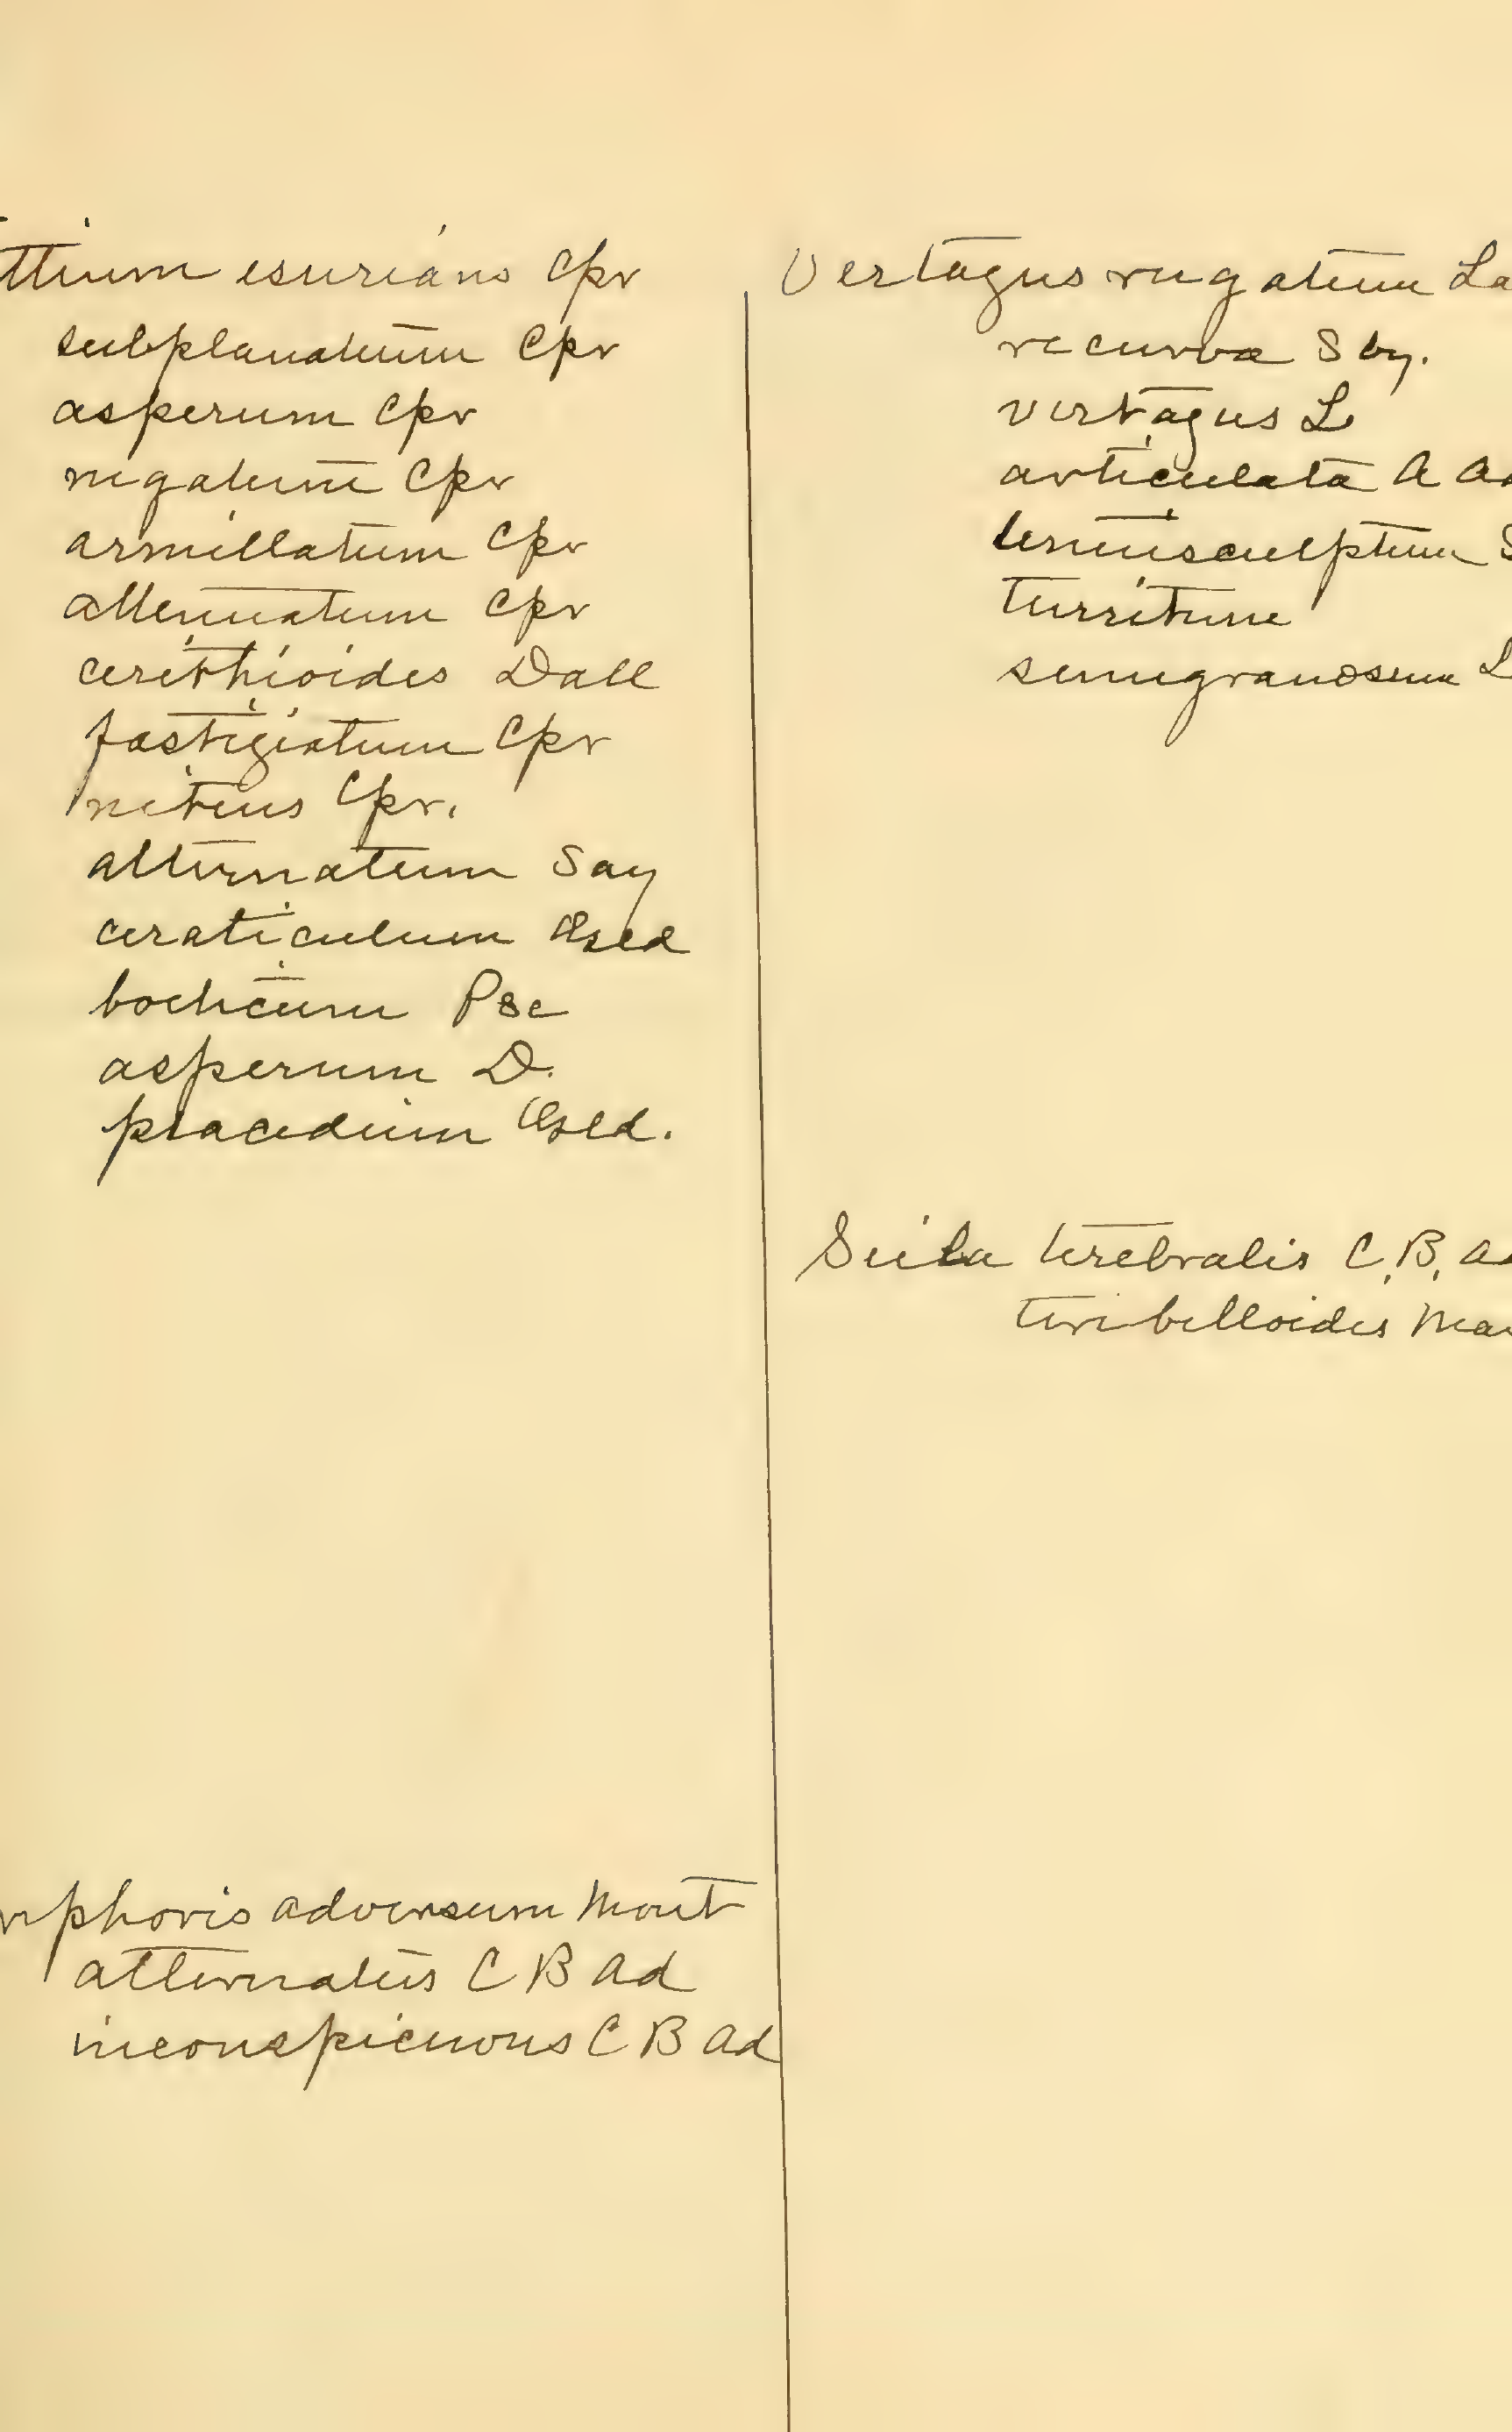 ttium esuriens Cpr
subplanatum Cpr
asperum Cpr
rugatum Cpr
armillatum Cpr
attenuatum Cpr
cerithioides Dall
fastigiatum Cpr
nitens Cpr.
alternatum Say
ceraticulum
Psc
asperum D.
placidium
mphoris adversum Mont
alternatus C B Ad
inconspicuous C B Ad
Vertagus rugatum La
recurva Sby.
vertagus L
articulata A Ad
tenuisculptum S
turritum
semigranosum L
Seila terebralis C.B. Ad
terebelloides Mar